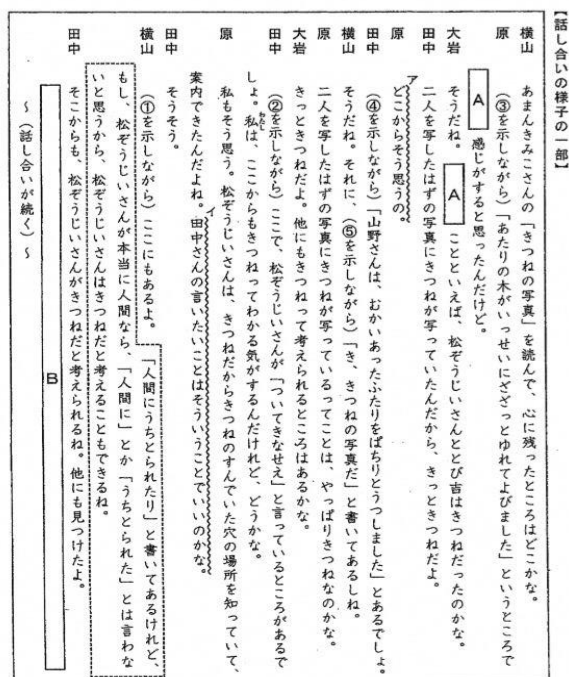 【話し合いの様子の一部】
横山 あまんきみこさんの「きつねの写真」を読んで、心に残ったところはどこかな。
原 (③を示しながら)「あたりの木がいっせいにざざっとゆれてよびました」というところで
A 感じがすると思ったんだけど。
大岩 そうだね。 A ことといえば、松ぞうじいさんととび吉はきつねだったのかな。
田中 二人を写したはずの写真にきつねが写っていたんだから、きっときつねだよ。
原 どこからそう思うの。
ア
田中 (④を示しながら)「山野さんは、むかいあったふたりをぱちりとうつしました」とあるでしょ。
横山 そうだね。それに、(⑤を示しながら)「き、きつねの写真だ」と書いてあるしね。
原 二人を写したはずの写真にきつねが写っているってことは、やっぱりきつねなのかな。
大岩 きっときつねだよ。他にもきつねって考えられるところはあるかな。
田中 (②を示しながら)ここで、松ぞうじいさんが「ついてきなせえ」と言っているところがあるで
しょ。私は、ここからもきつねってわかる気がするんだけれど、どうかな。
わたし
原 私もそう思う。松ぞうじいさんは、きつねだからきつねのすんでいた穴の場所を知っていて、
案内できたんだよね。田中さんの言いたいことはそういうことでいいのかな。
イ
田中 そうそう。
横山 (①を示しながら)ここにもあるよ。「人間にうちとられたり」と書いてあるけれど、
もし、松ぞうじいさんが本当に人間なら、「人間に」とか「うちとられた」とは言わな
いと思うから、松ぞうじいさんはきつねだと考えることもできるね。
田中 そこからも、松ぞうじいさんがきつねだと考えられるね。他にも見つけたよ。
B
～(話し合いが続く)～